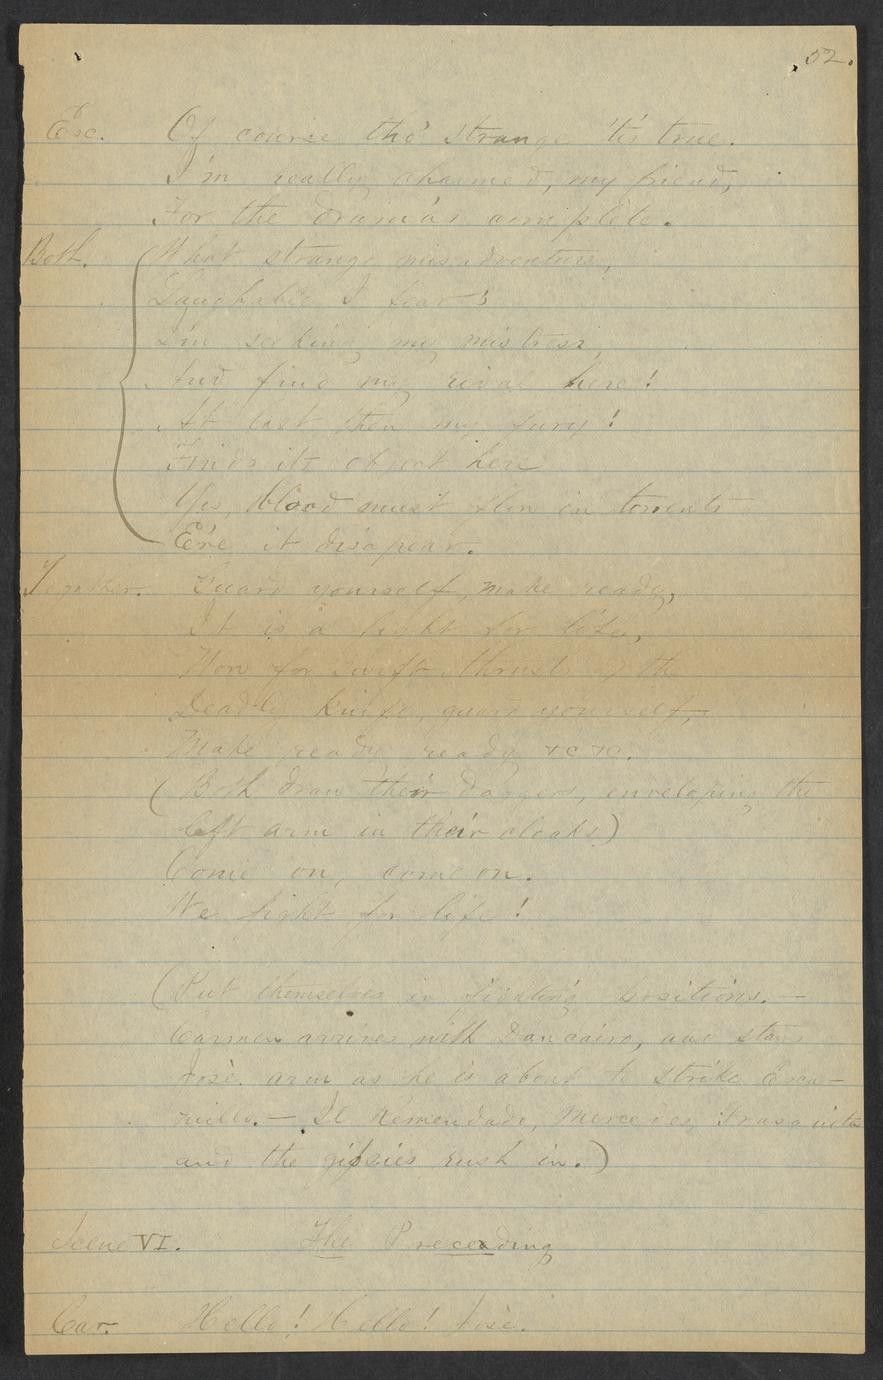 52.
Esc. Of course tho' strange 'tis true.
I'm really charmed, my friend,
For the drama's complete.
Both. What strange misadventure,
Laughable I fear;
I'm seeking my mistress
And find my rival here!
At last then my fury!
Finds its object here
Yes, blood must flow in torrents
E're it disapear.
Together. Guard yourself, make ready,
It is a fight for life,
Now for swift thrust of the
Deadly knife, guard yourself,
Make ready ready &c &c.
(Both draw their daggers, enveloping the
left arm in their cloaks)
Come on, come on.
We fight for life!
(Put themselves in fighting positions. —
Carmen arrives with Dancairo, and stays
José. arm as he is about to strike Esca-
millo. — Il Remendado, Mercedes, Frasquita
and the gipsies rush in.)
Scene VI. The Preceeding
Car. Hello! Hello! José.